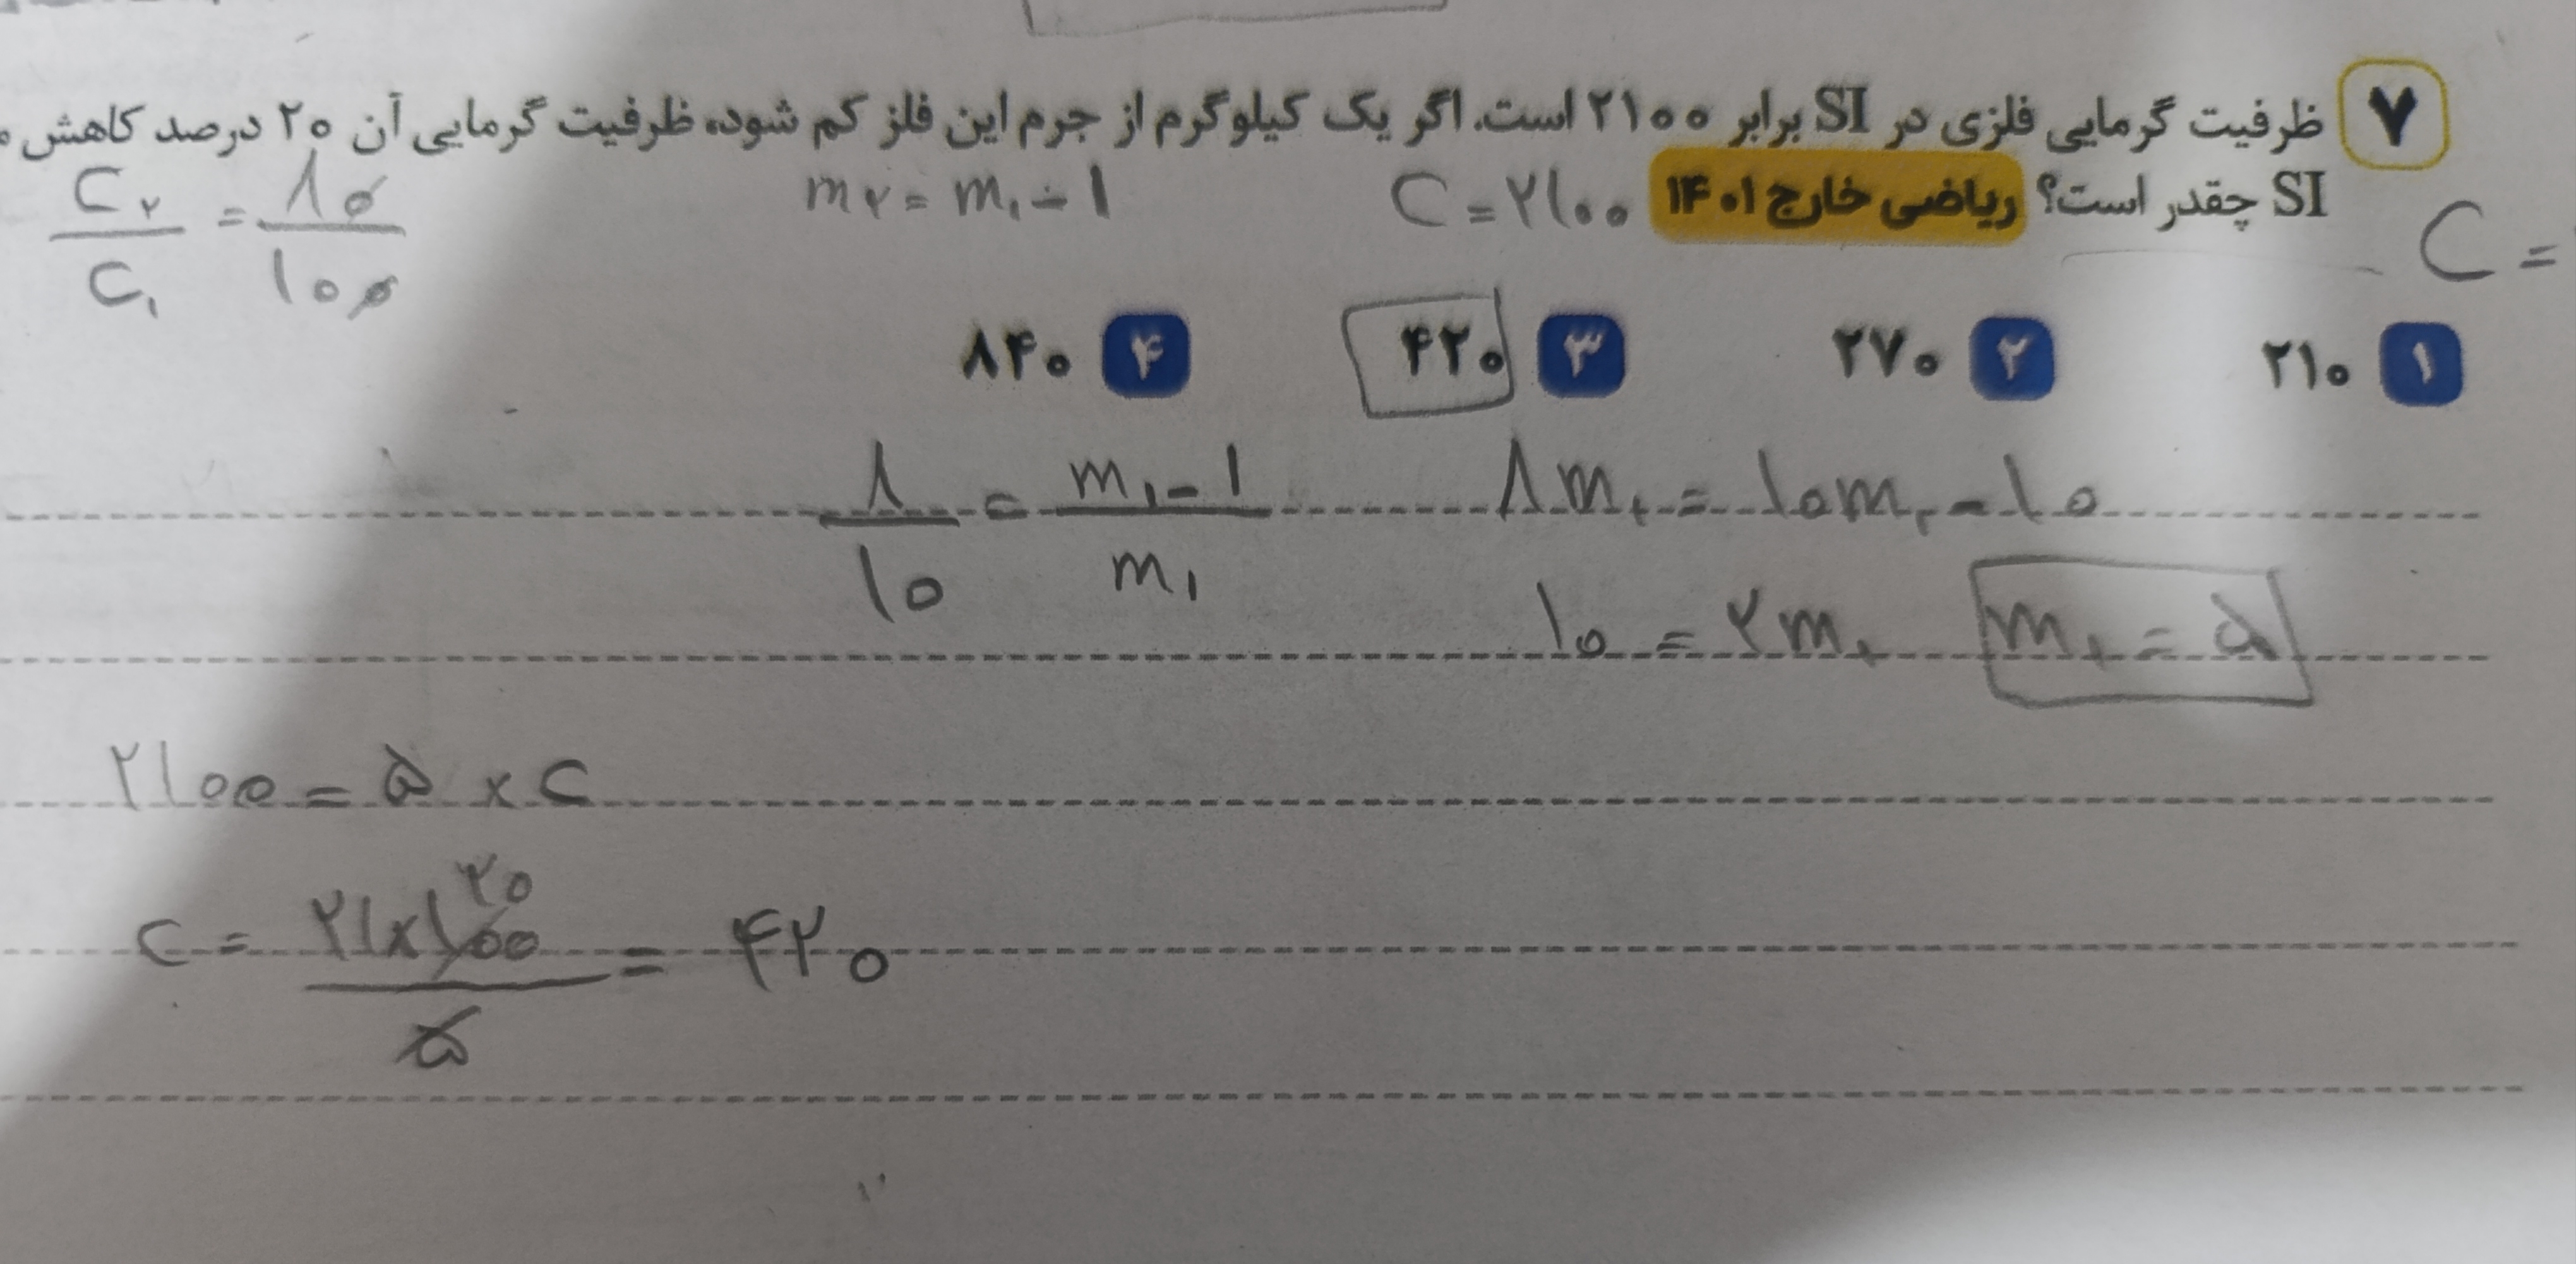 ۷ ظرفیت گرمایی فلزی در SI برابر ۲۱۰۰ است. اگر یک کیلوگرم از جرم این فلز کم شود، ظرفیت گرمایی آن ۲۰ درصد کاهش
SI چقدر است؟ ریاضی خارج ۱۴۰۱ C = ۲۱۰۰ m۲ = m۱ - ۱ C۲/C۱ = ۸۰/۱۰۰
C =
۱ ۲۱۰ ۲ ۲۷۰ ۳ ۴۲۰ ۴ ۸۴۰
۸/۱۰ = m۱-۱/m۱ ۸m۱ = ۱۰m۱ - ۱۰
۱۰ = ۲m۱ m۱ = ۵
۲۱۰۰ = ۵ × c
c = ۲۱×۱۰۰/۵ = ۴۲۰
۲۰